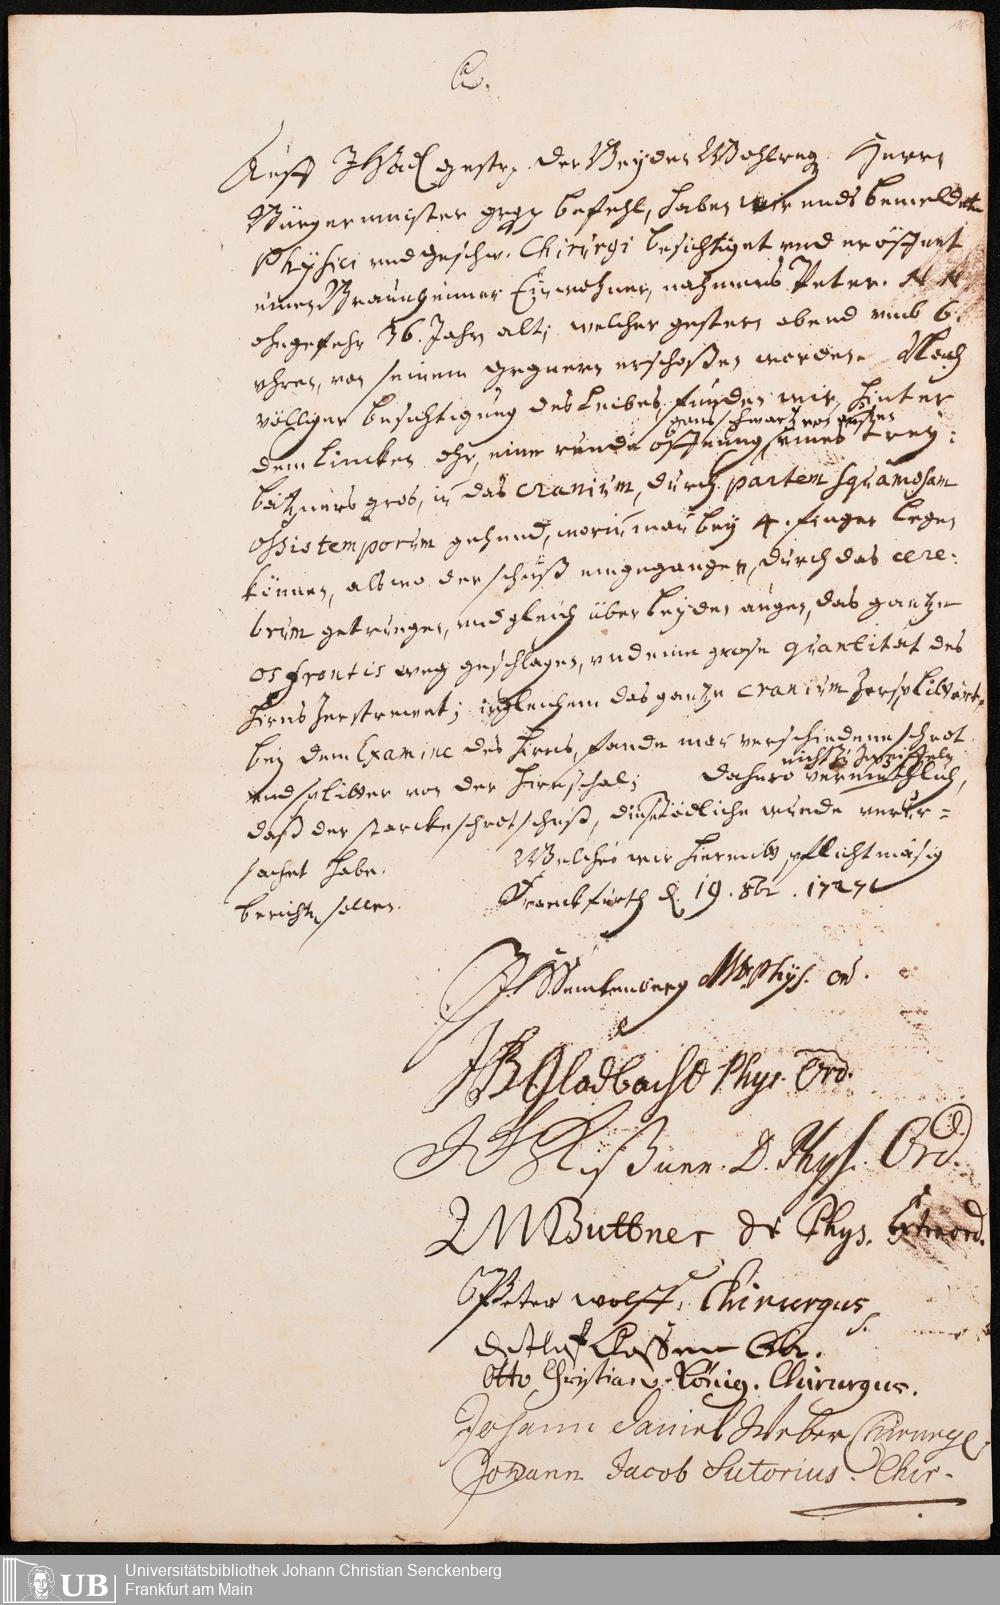 C.
Auff gestr. der Beyden Wohlreg. Herrn
Bürgermeister befehl, haben wir ends bemeldete
Physici und geschw. Chirurgi besichtiget und eröffnet
einen Braunheimer Einwohner, nahmens Peter. N N.
ohngefehr 36. Jahr alt, welcher gestern abend umb 6.
uhren, von seinem gegnern erschoßen worden. Nach
völliger besichtigung des leibes, funden wir, hinter
gans schwartz von
dem lincken ohr, eine runde öffnung, eines drey:
bätzners gros, in das cranium, durch partem squamosam
ossis temporum gehend, worin man bey 4. finger legen
können, alswo der schuß eingegangen, durch das cere:
brum getrungen, und gleich über beyden augen, das gantze
os frontis weg geschlagen, und eine grose quantitat des
hirns zerstrewet; ingleichem das gantze cranium zersplittert,
bey dem Examine des hirns, fande man verschiedene schrot
nicht zu zweiffeln
und splitter von der hirnschal; dahero vermuthlich,
daß der starcke schrotschuß, diese tödliche wunde verur=
sachet habe. Welches wir hiermitt pflichtmäsig
berichten sollen. Franckfurth d. 19. 8br. 1727
JHSenckenberg MD Phys. ord.
JBGladbach D Phys. Ord.
D. Phys. Ord.
Buttner Dr Phys. Extraord.
Peter wolff, Chirurgus
s.
Detlef Classen Chir.
Otto Christian König. Chirurgus.
Johann Daniel Weber Chirurg,
Johann Jacob Sutorius. Chir.
UB
Universitätsbibliothek Johann Christian Senckenberg
Frankfurt am Main